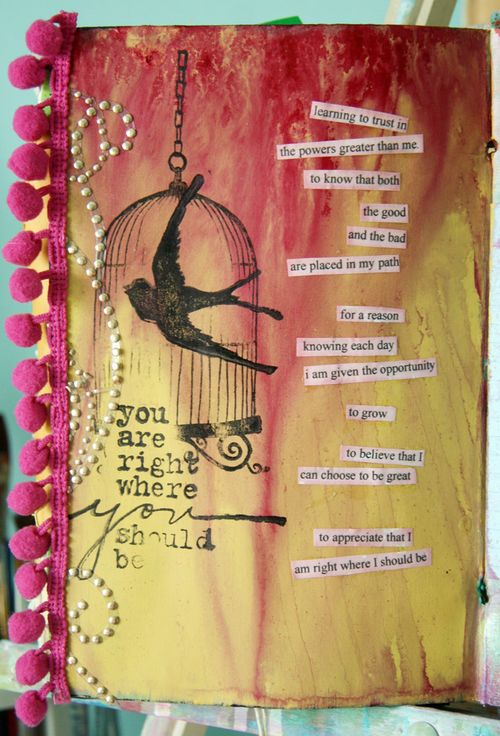 learning to trust in
the powers greater than me.
to know that both
the good
and the bad
are placed in my path
for a reason
knowing each day
i am given the opportunity
to grow
to believe that I
can choose to be great
to appreciate that I
am right where I should be
you
are
right
where
you
should
be